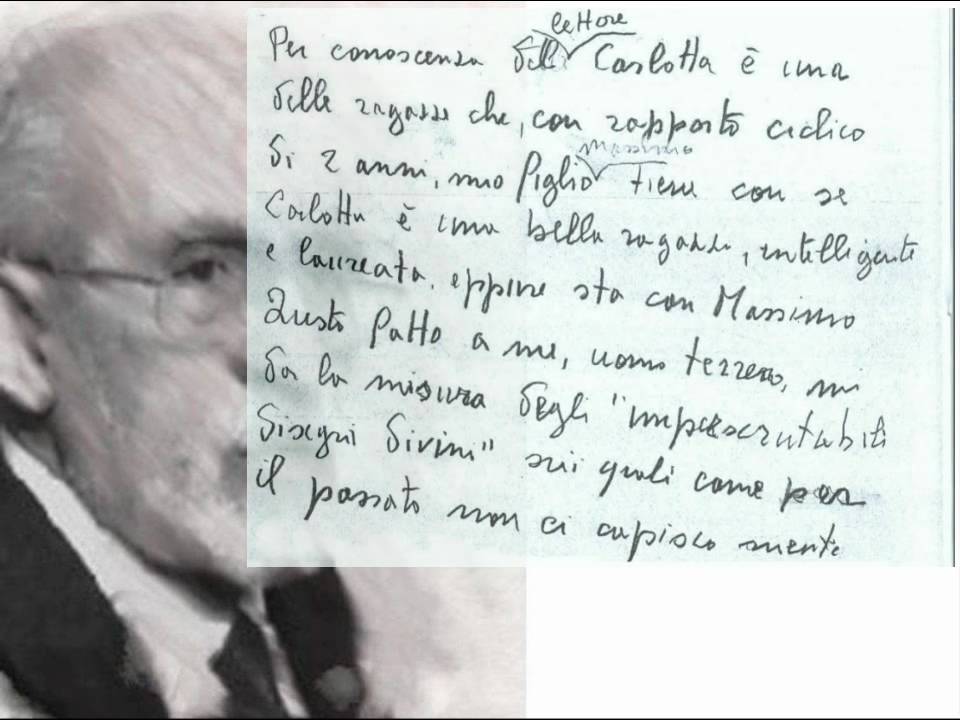 lettore
Per conoscenza del Carlotta è una
delle ragazze che, con rapporto ciclico
massimo
di 2 anni, mio figlio tiene con se
Carlotta è una bella ragazza, intelligente
e laureata, eppure sta con Massimo
Questo fatto a me, uomo terreno, mi
da la misura degli "imperscrutabili
disegni divini" sui quali come per
il passato non ci capisco niente